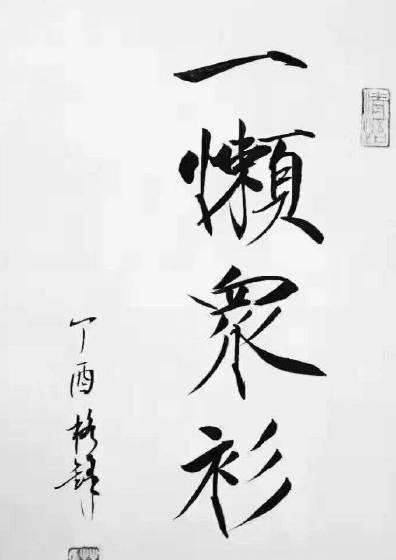 一懒衆衫
丁酉